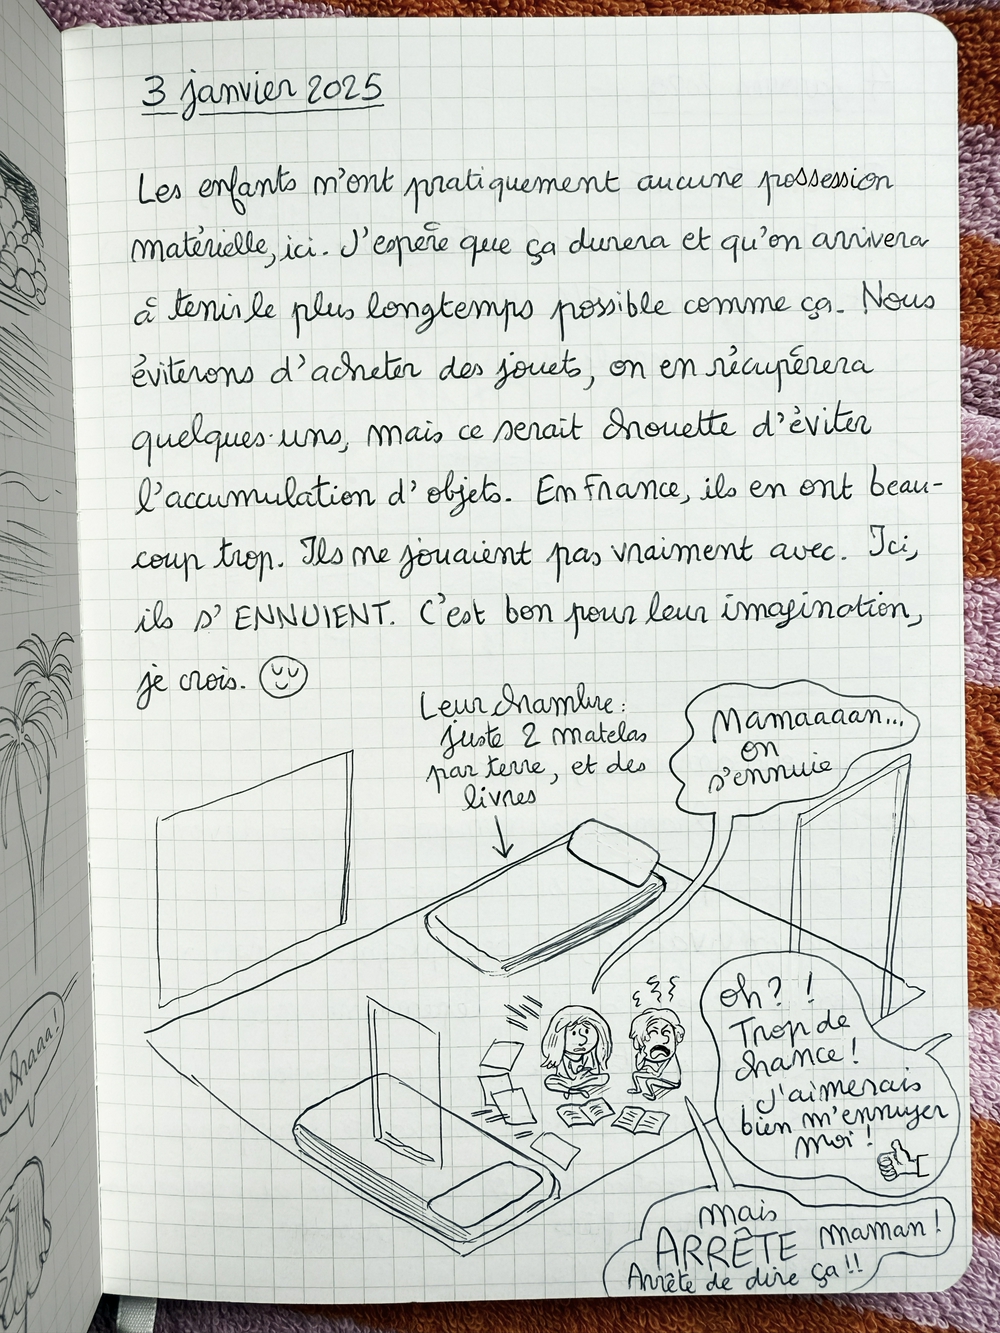 3 janvier 2025
Les enfants n'ont pratiquement aucune possession
matérielle, ici. J'espère que ça durera et qu'on arrivera
à tenir le plus longtemps possible comme ça. Nous
éviterons d'acheter des jouets, on en récupérera
quelques-uns, mais ce serait chouette d'éviter
l'accumulation d'objets. En France, ils en ont beau-
coup trop. Ils ne jouaient pas vraiment avec. Ici,
ils s'ENNUIENT. C'est bon pour leur imagination,
je crois.
Leur chambre :
juste 2 matelas
par terre, et des
livres
Mamaaaan...
on
s'ennuie
oh ? !
Trop de
chance !
J'aimerais
bien m'ennuyer
moi !
mais
ARRÊTE maman !
Arrête de dire ça !!